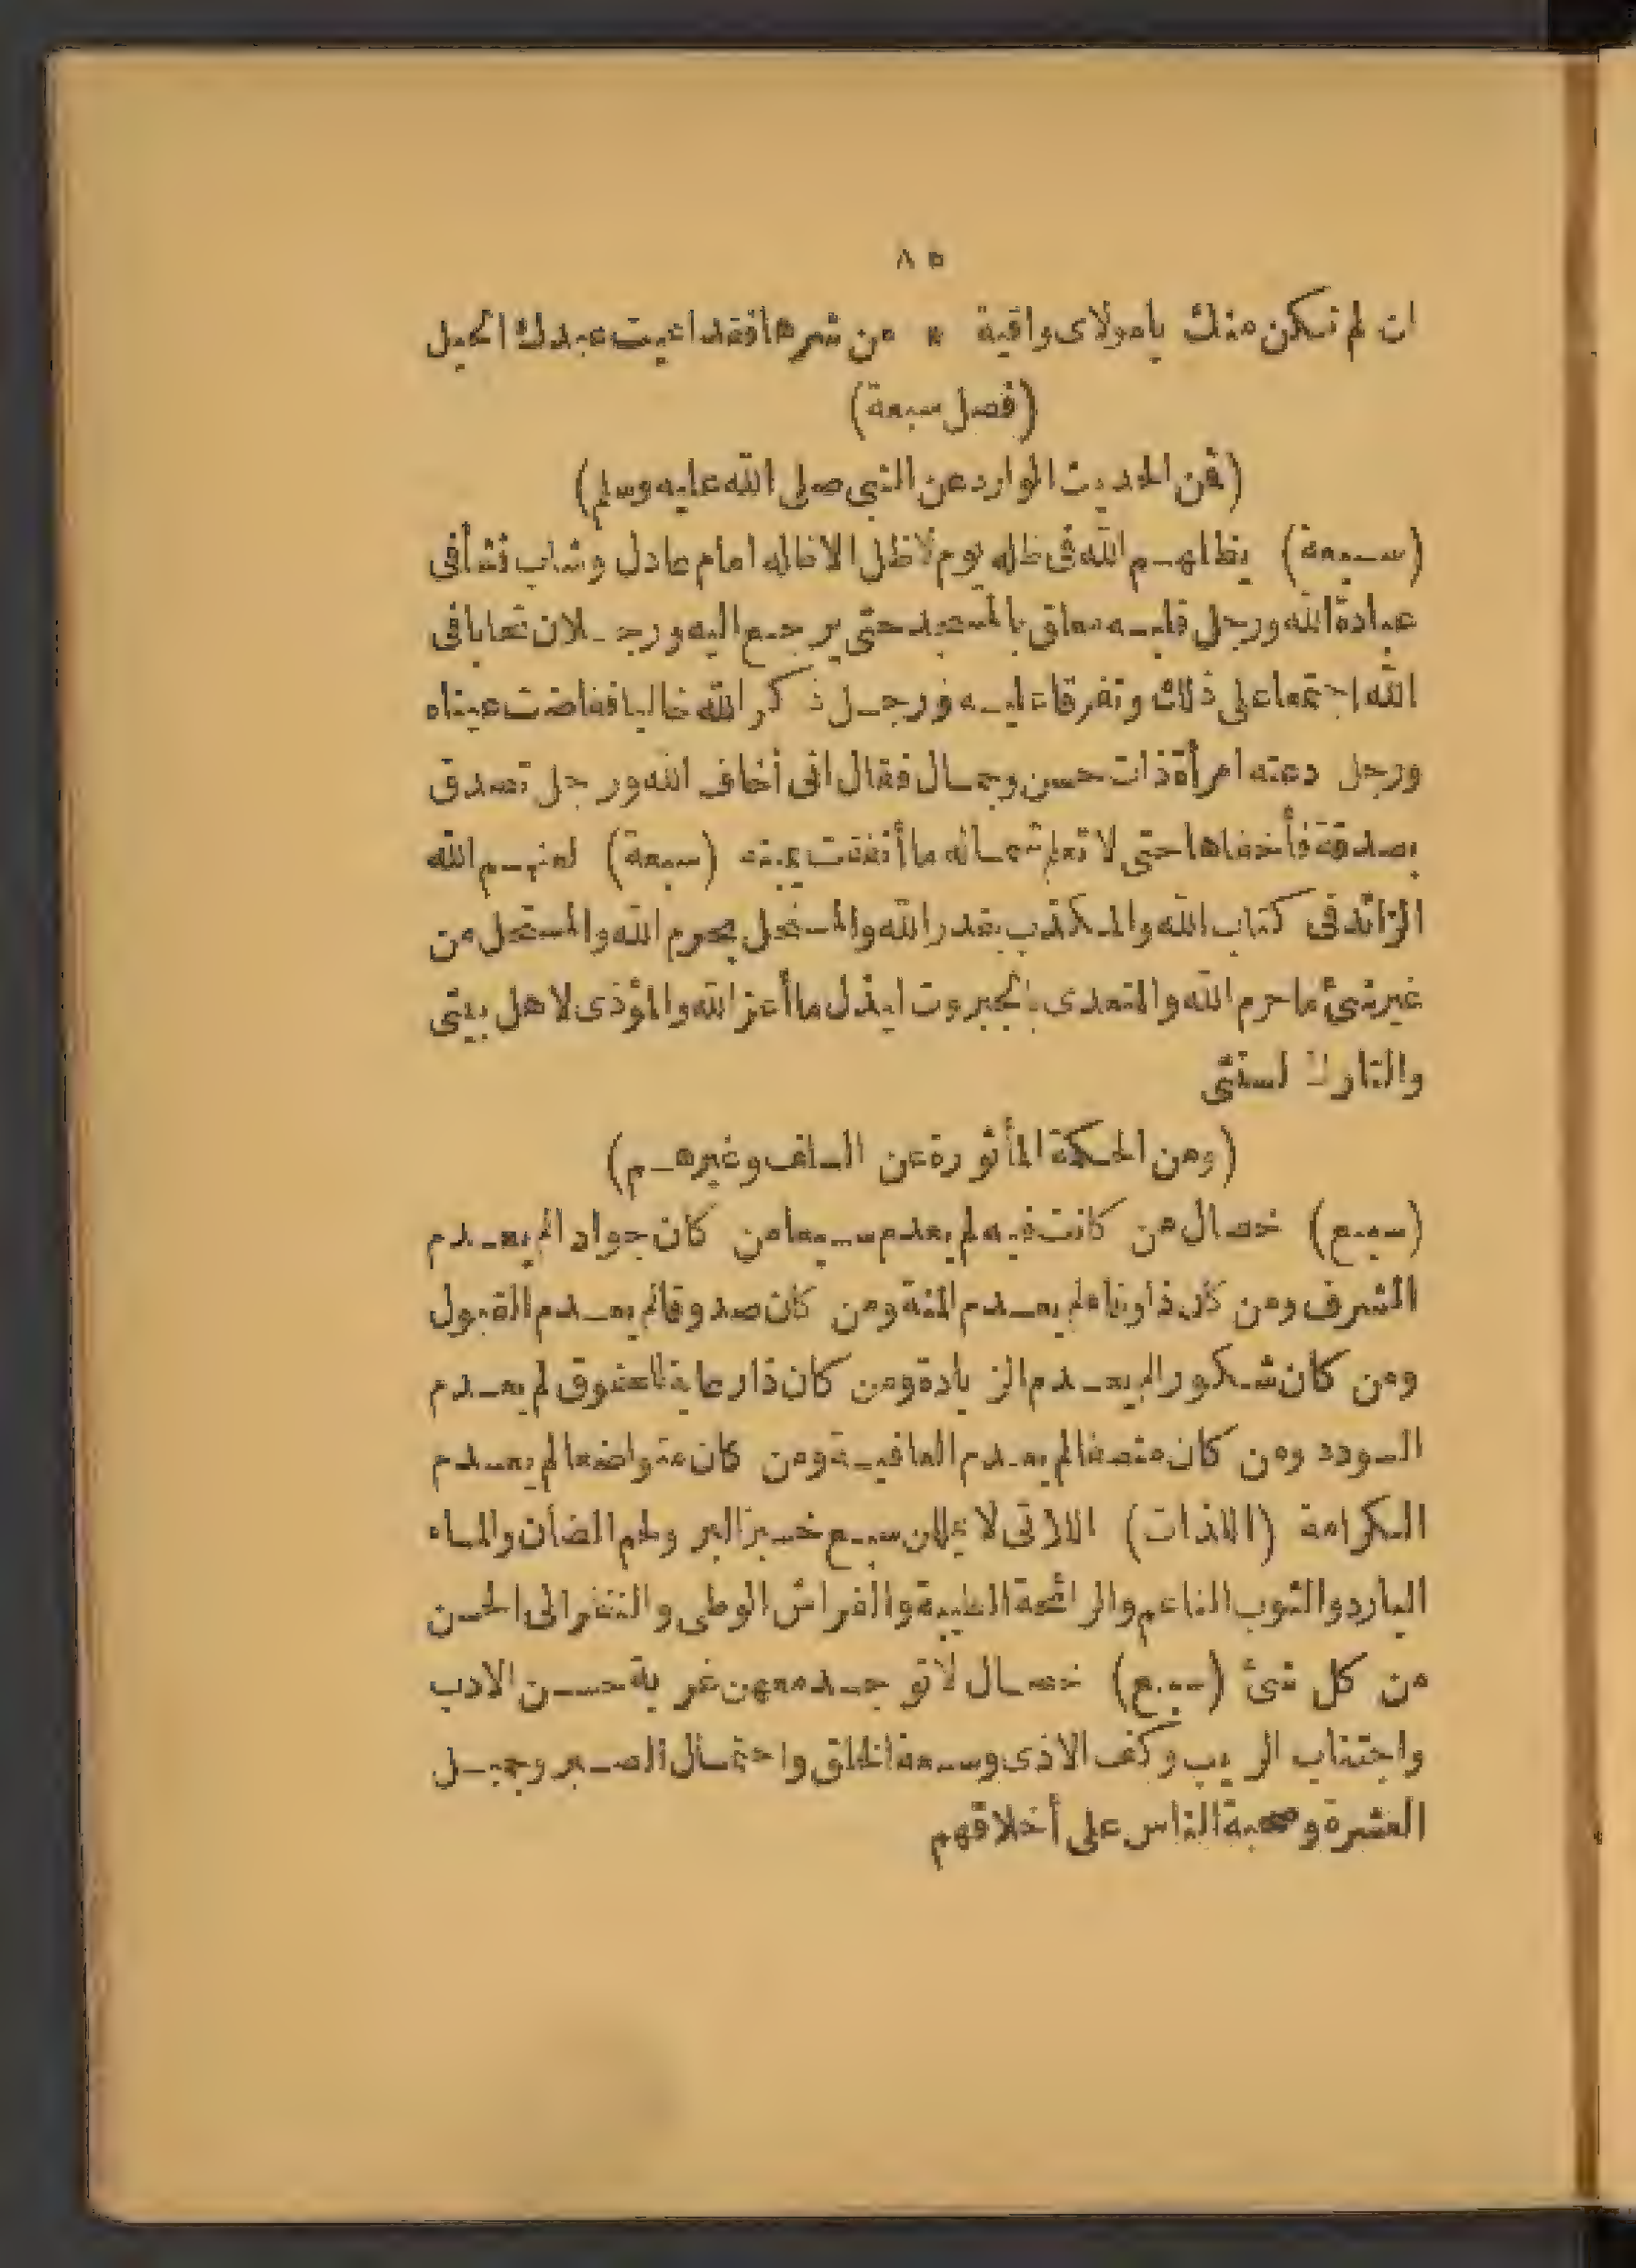 ٨٥
ان لم تكن منك يا مولاى واقية * من شرها فقد اعيت عبدك الحيل
(فصل سبعة)
(فمن الحديث الوارد عن النبى صلى الله عليه وسلم)
(سبعة) يظلهم الله فى ظله يوم لا ظل الا ظله امام عادل وشاب نشأ فى
عبادة الله ورجل قلبه معلق بالمسجد حتى يرجع اليه ورجلان تحابا فى
الله اجتمعا على ذلك وتفرقا عليه ورجل ذكر الله خاليا ففاضت عيناه
ورجل دعته امرأة ذات حسن وجمال فقال انى أخاف الله ورجل تصدق
بصدقة فأخفاها حتى لا تعلم شماله ما أنفقت يمينه (سبعة) لعنهم الله
الزائد فى كتاب الله والمكذب بقدر الله والمستحل بحرم الله والمستحل من
غير شئ ما حرم الله والمتعدى بالجبروت ليذل ما أعز الله والمؤذى لاهل بيتى
والتارك لسنتى
(ومن الحكمة المأثورة عن السلف وغيرهم)
(سبع) خصال من كانت فيه لم يعدم سبعا من كان جوادا لم يعدم
الشرف ومن كان ذا وفاء لم يعدم المنة ومن كان صدوقا لم يعدم القبول
ومن كان شكورا لم يعدم الزيادة ومن كان ذا رعاية للحقوق لم يعدم
السودد ومن كان منصفا لم يعدم العافية ومن كان متواضعا لم يعدم
الكرامة (اللذات) اللاتى لا يمللن سبع خبز البر ولحم الضأن والماء
البارد والثوب الناعم والرائحة الطيبة والفراش الوطى والنظر الى الحسن
من كل شئ (سبع) خصال لا توجد معهن غربة حسن الادب
واجتناب الريب وكف الاذى وسعة الخلق واحتمال الصبر وجميل
العشرة وصحبة الناس على أخلاقهم